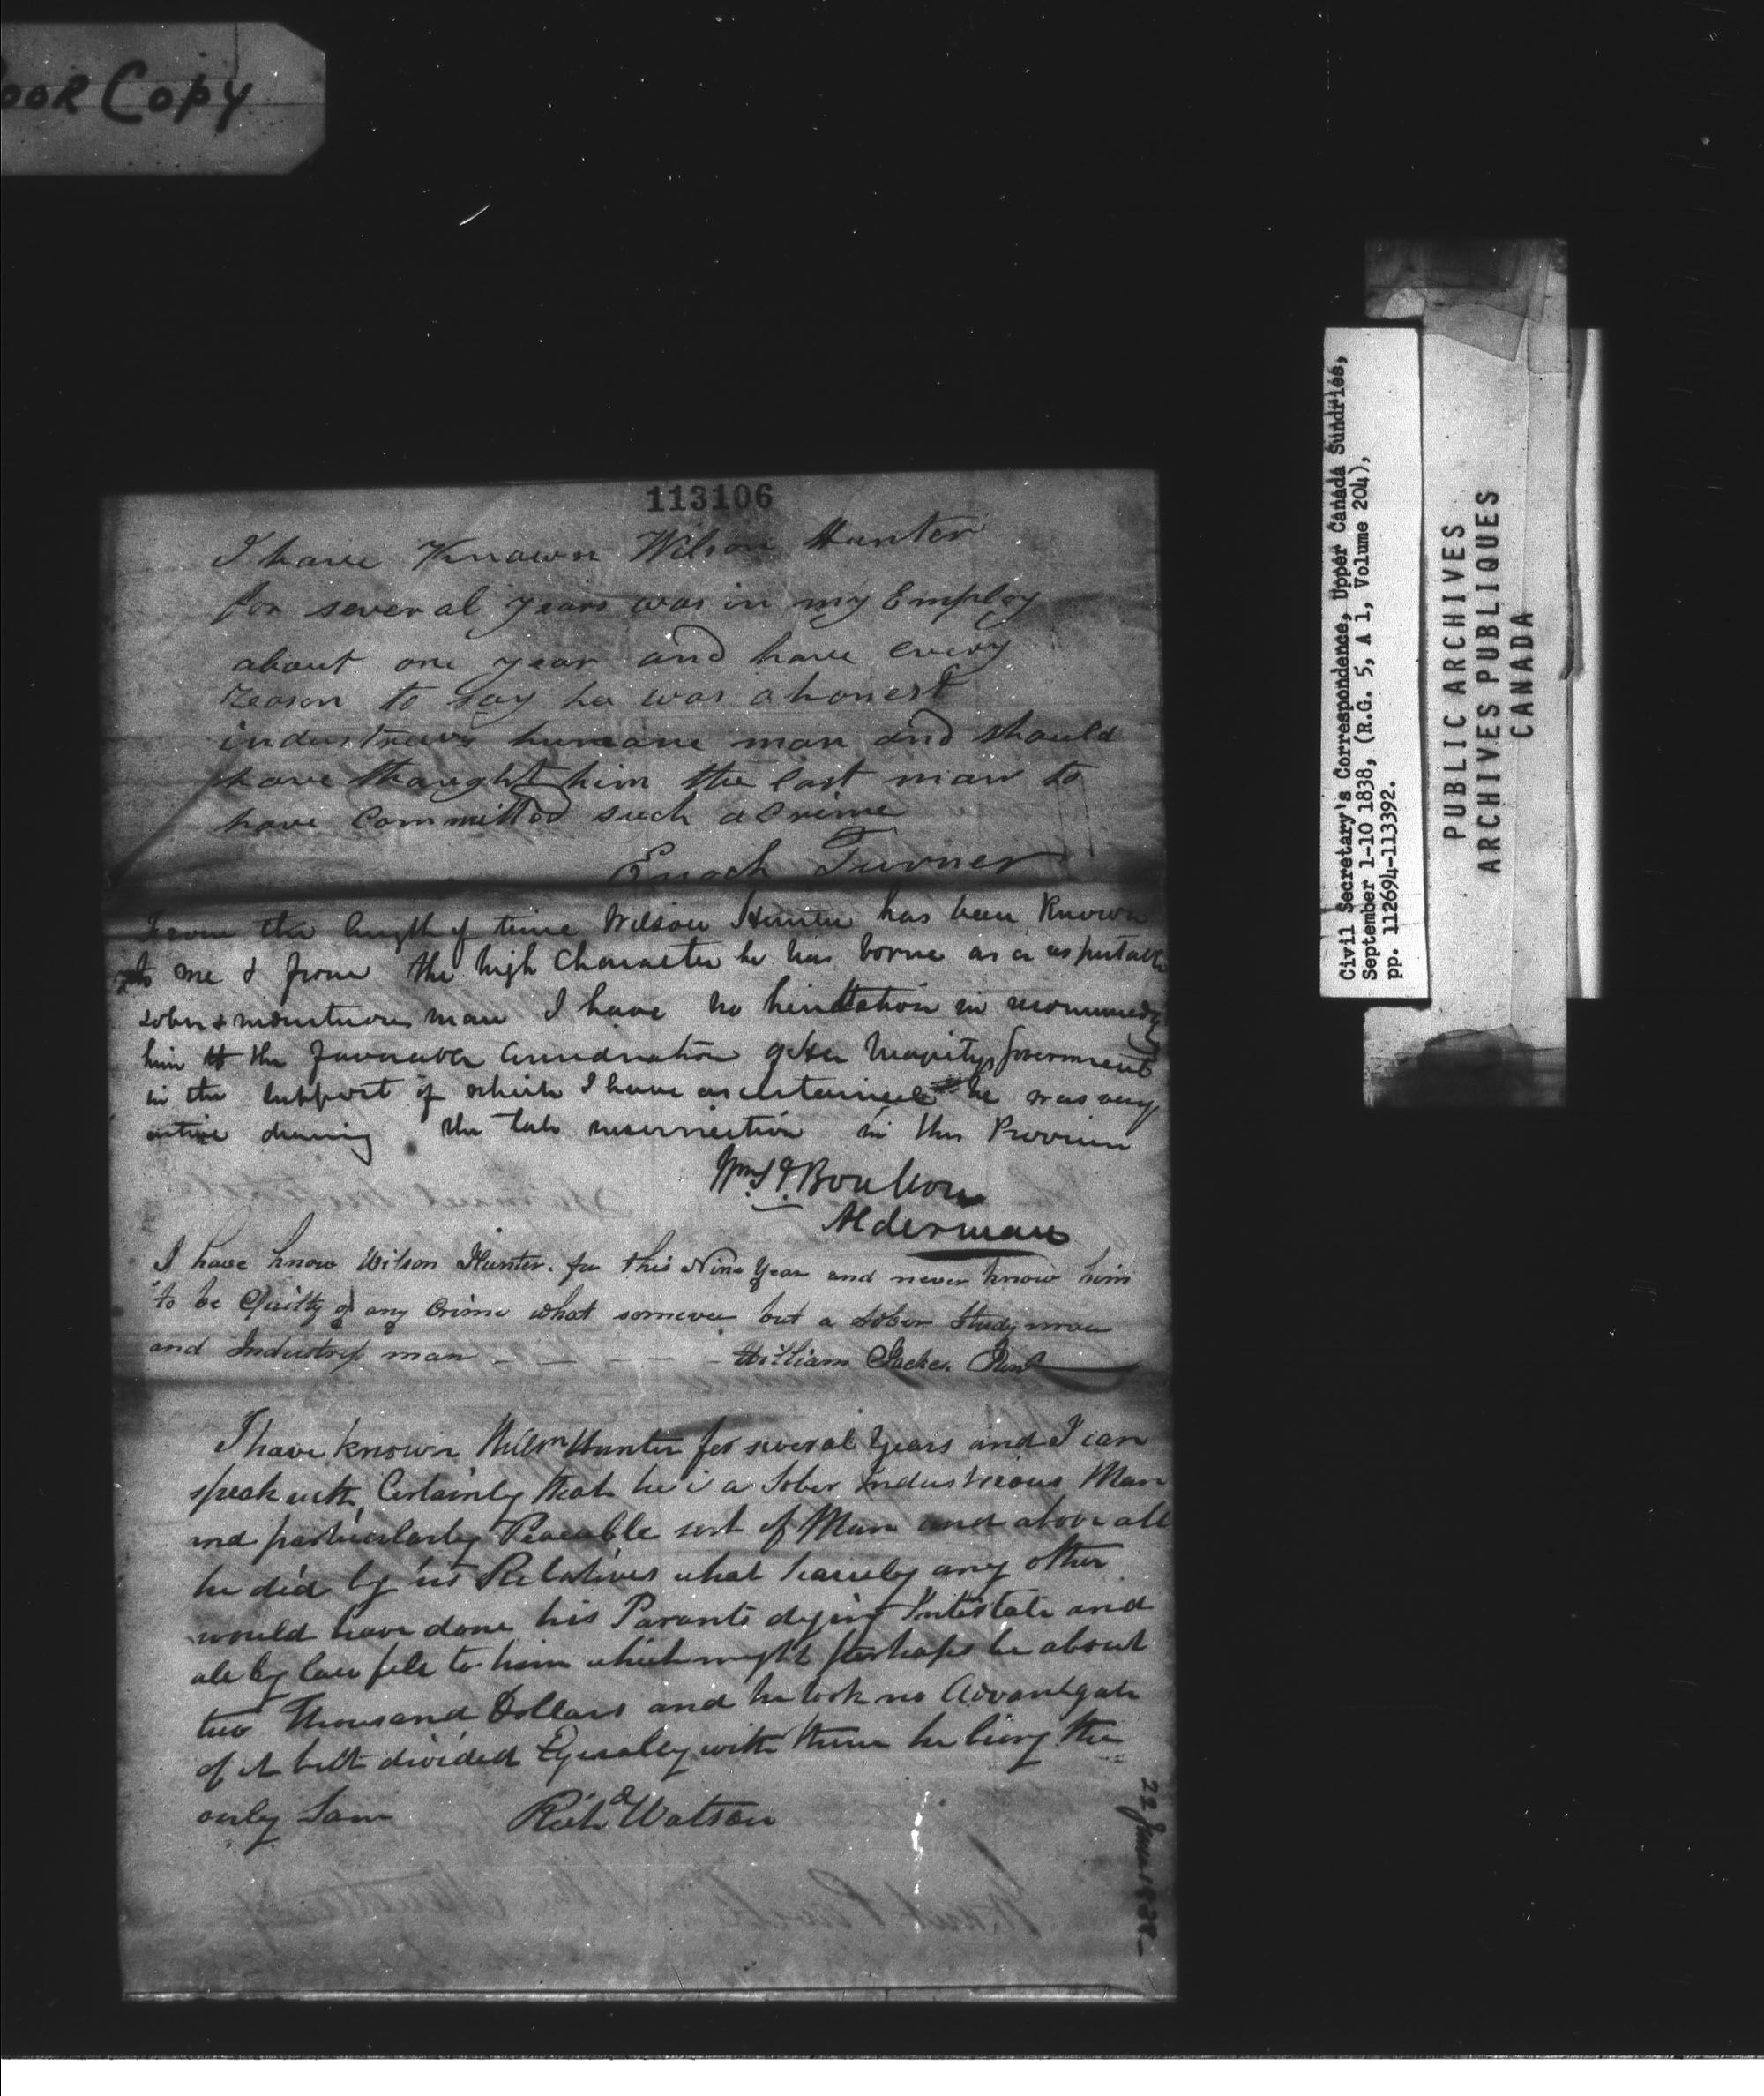 oor Copy
113106
I have Known Wilson Hunter
for several years was in my Employ
about one year and have every
reason to say he was a honest
industrews humane man and should
have thought him the last man to
have Committed such a Crime
Enoch Turner
From the length of time Wilson Hunter has been Known
to me & from the high Character he has borne as a respectable
sober & industrious man I have no hesitation in recommending
him to the favourable Consideration of Her Majestys Government
in the support of which I have ascertained he was very
active during the late insurrection in this Province
Wm. Boulton
Alderman
I have know Wilson Hunter. for this Nine Year and never know him
to be Guilty of any Crime what somever but a sober Study man
and Industry man - - - - - William
I have known Wilsn Hunter for several Years and I can
speak with Certainty that he is a Sober Industrious Man
and particularly Peaceable sort of Man and above all
he did by his Relatives what scarcely any other
would have done his Parants dying Intestate and
all by law fell to him which might perhaps be about
two Thousand Dollars and he took no Advantgate
of it but divided Equally with them he being the
only Son
Richd Watson
22 June 1838
Civil Secretary's Correspondence, Upper Canada Sundries,
September 1-10 1838, (R.G. 5, A 1, Volume 204),
pp. 112694-113392.
PUBLIC ARCHIVES
ARCHIVES PUBLIQUES
CANADA